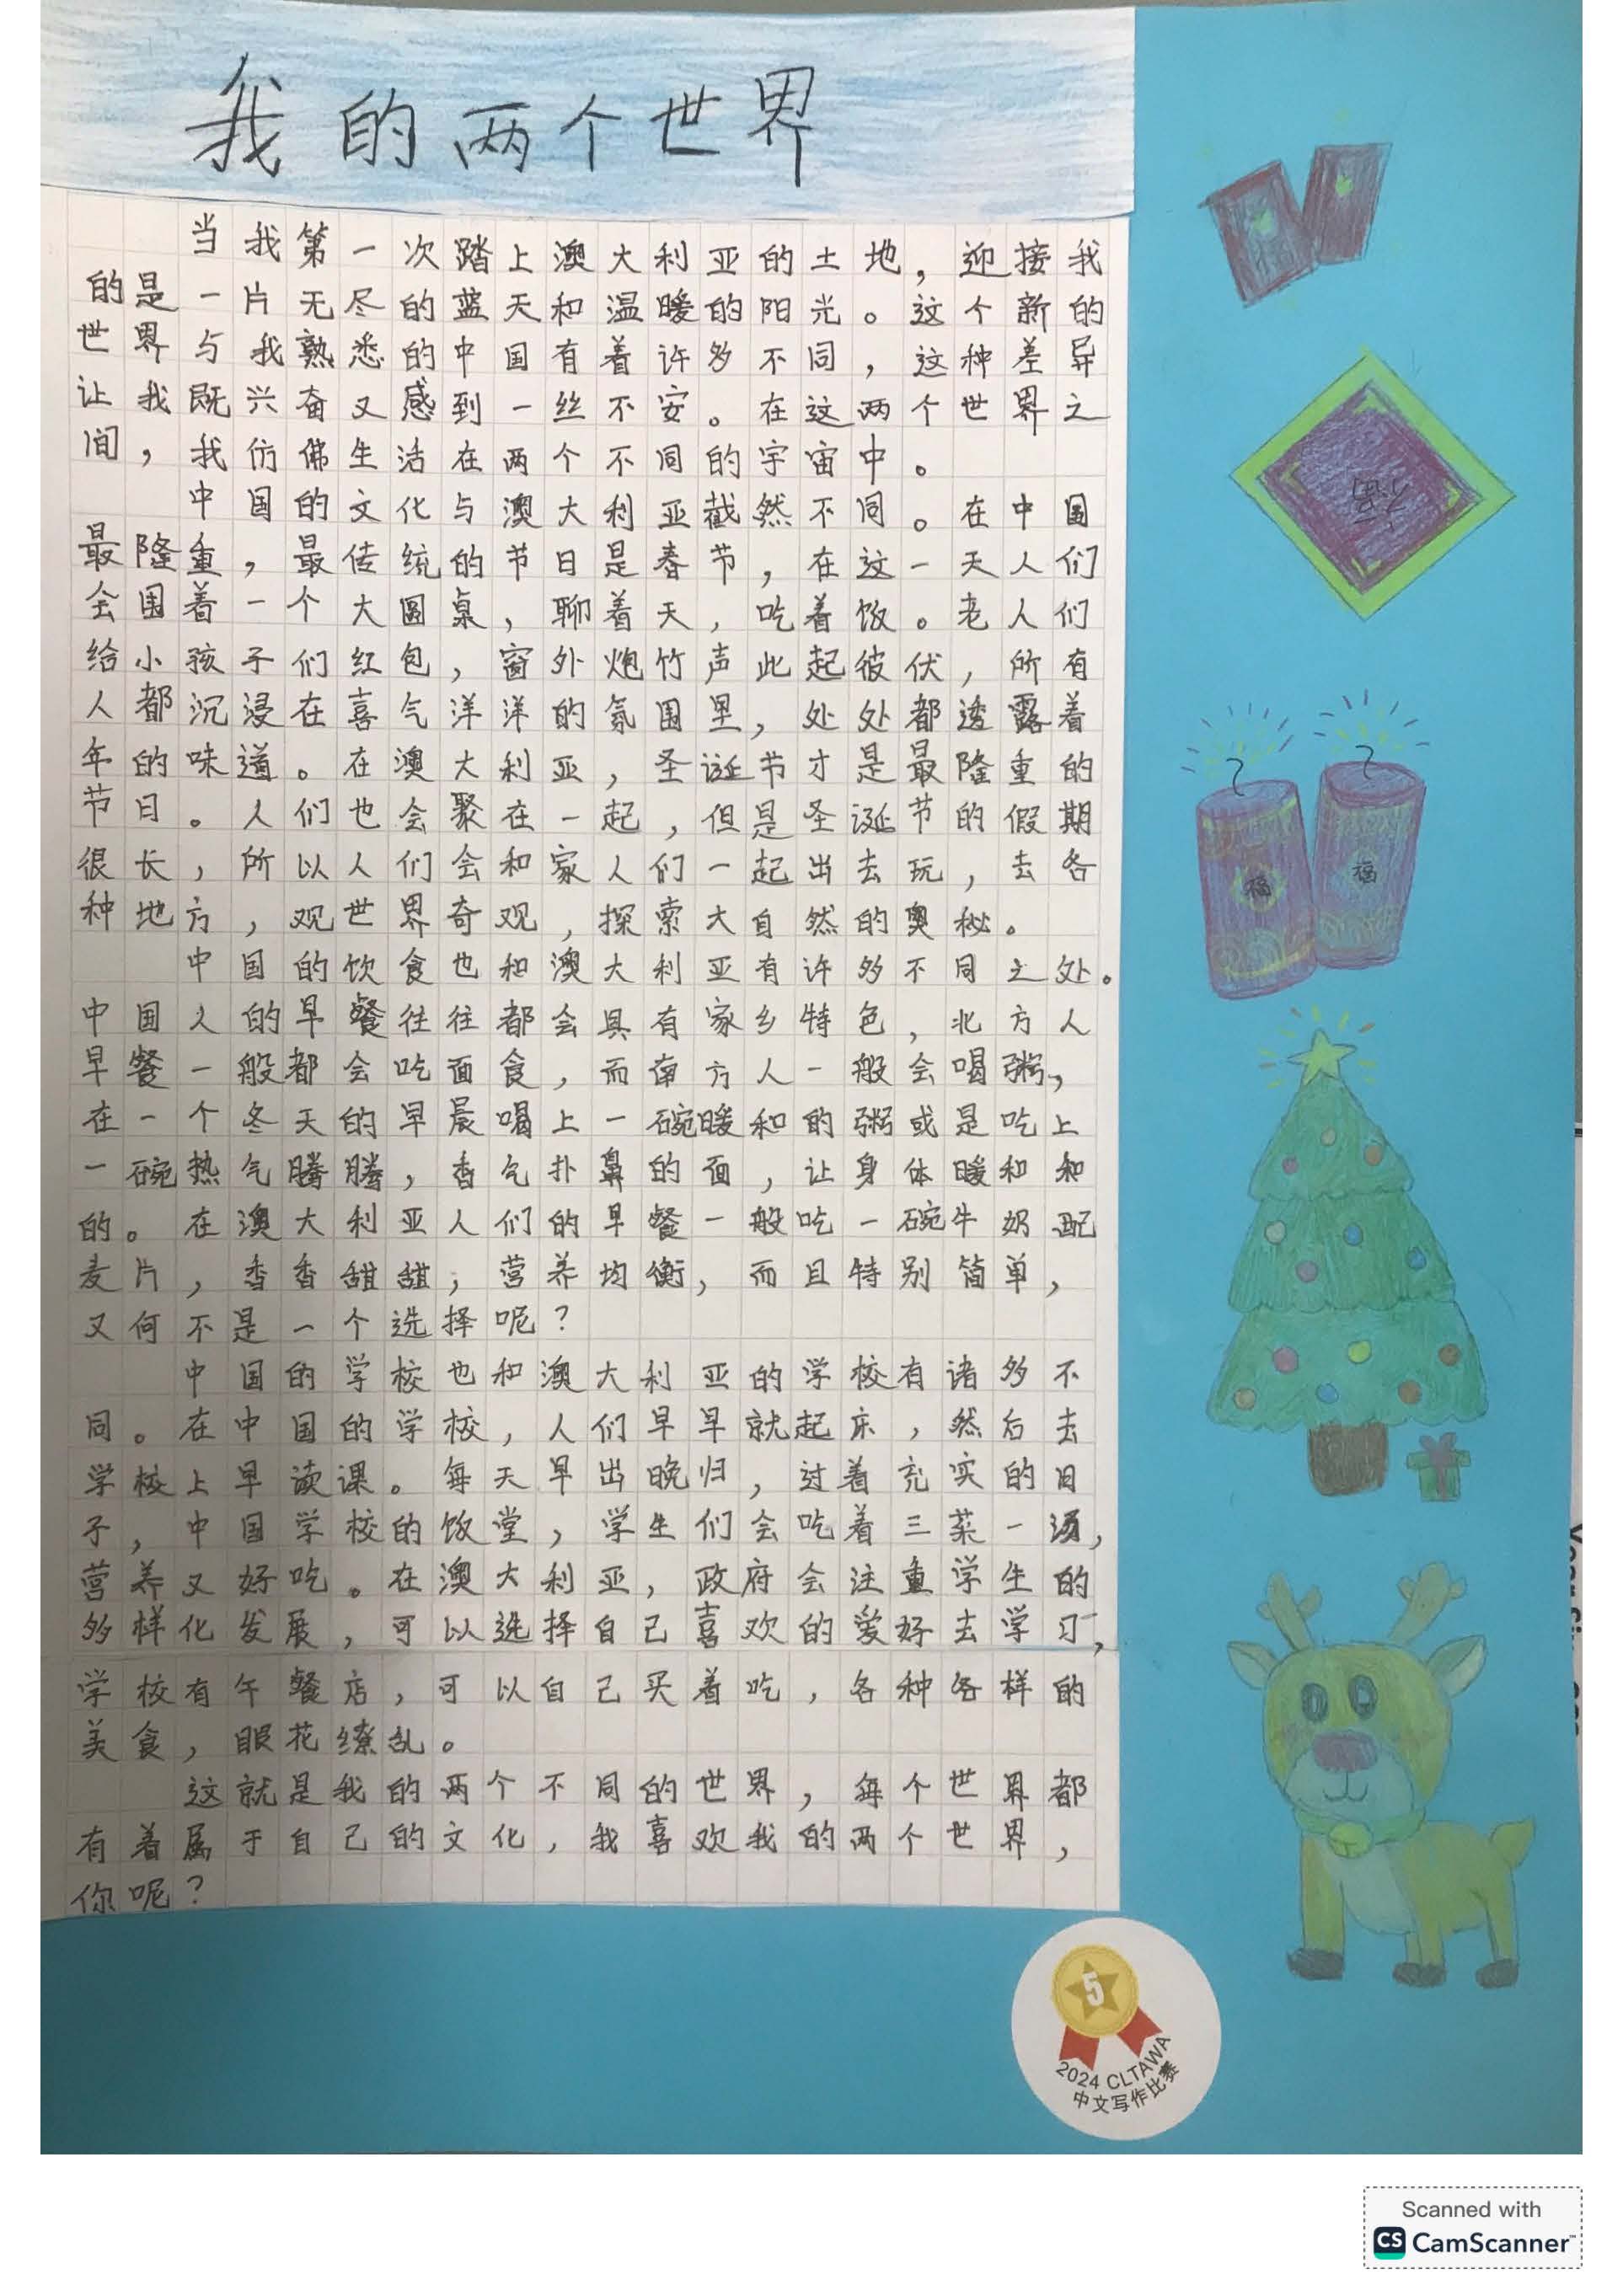 我的两个世界
当我第一次踏上澳大利亚的土地，迎接我
的是一片无尽的蓝天和温暖的阳光。这个新的
世界与我熟悉的中国有着许多不同，这种差异
让我既兴奋又感到一丝不安。在这两个世界之
间，我仿佛生活在两个不同的宇宙中。
中国的文化与澳大利亚截然不同。在中国
最隆重，最传统的节日是春节，在这一天人们
会围着一个大圆桌，聊着天，吃着饭。老人们
给小孩子们红包，窗外炮竹声此起彼伏，所有
人都沉浸在喜气洋洋的氛围里，处处都透露着
年的味道。在澳大利亚，圣诞节才是最隆重的
节日。人们也会聚在一起，但是圣诞节的假期
很长，所以人们会和家人们一起出去玩，去各
种地方，观世界奇观，探索大自然的奥秘。
中国的饮食也和澳大利亚有许多不同之处。
中国人的早餐往往都会具有家乡特色，北方人
早餐一般都会吃面食，而南方人一般会喝粥，
在一个冬天的早晨喝上一碗暖和的粥或是吃上
一碗热气腾腾，香气扑鼻的面，让身体暖和和
的。在澳大利亚人们的早餐一般吃一碗牛奶配
麦片，香香甜甜，营养均衡，而且特别简单，
又何不是一个选择呢？
中国的学校也和澳大利亚的学校有诸多不
同。在中国的学校，人们早早就起床，然后去
学校上早读课。每天早出晚归，过着充实的日
子，中国学校的饭堂，学生们会吃着三菜一汤，
营养又好吃。在澳大利亚，政府会注重学生的
多样化发展，可以选择自己喜欢的爱好去学习，
学校有午餐店，可以自己买着吃，各种各样的
美食，眼花缭乱。
这就是我的两个不同的世界，每个世界都
有着属于自己的文化，我喜欢我的两个世界，
你呢？
福
福
福
福
5
2024 CLTAWA
中文写作比赛
Scanned with
CS CamScanner